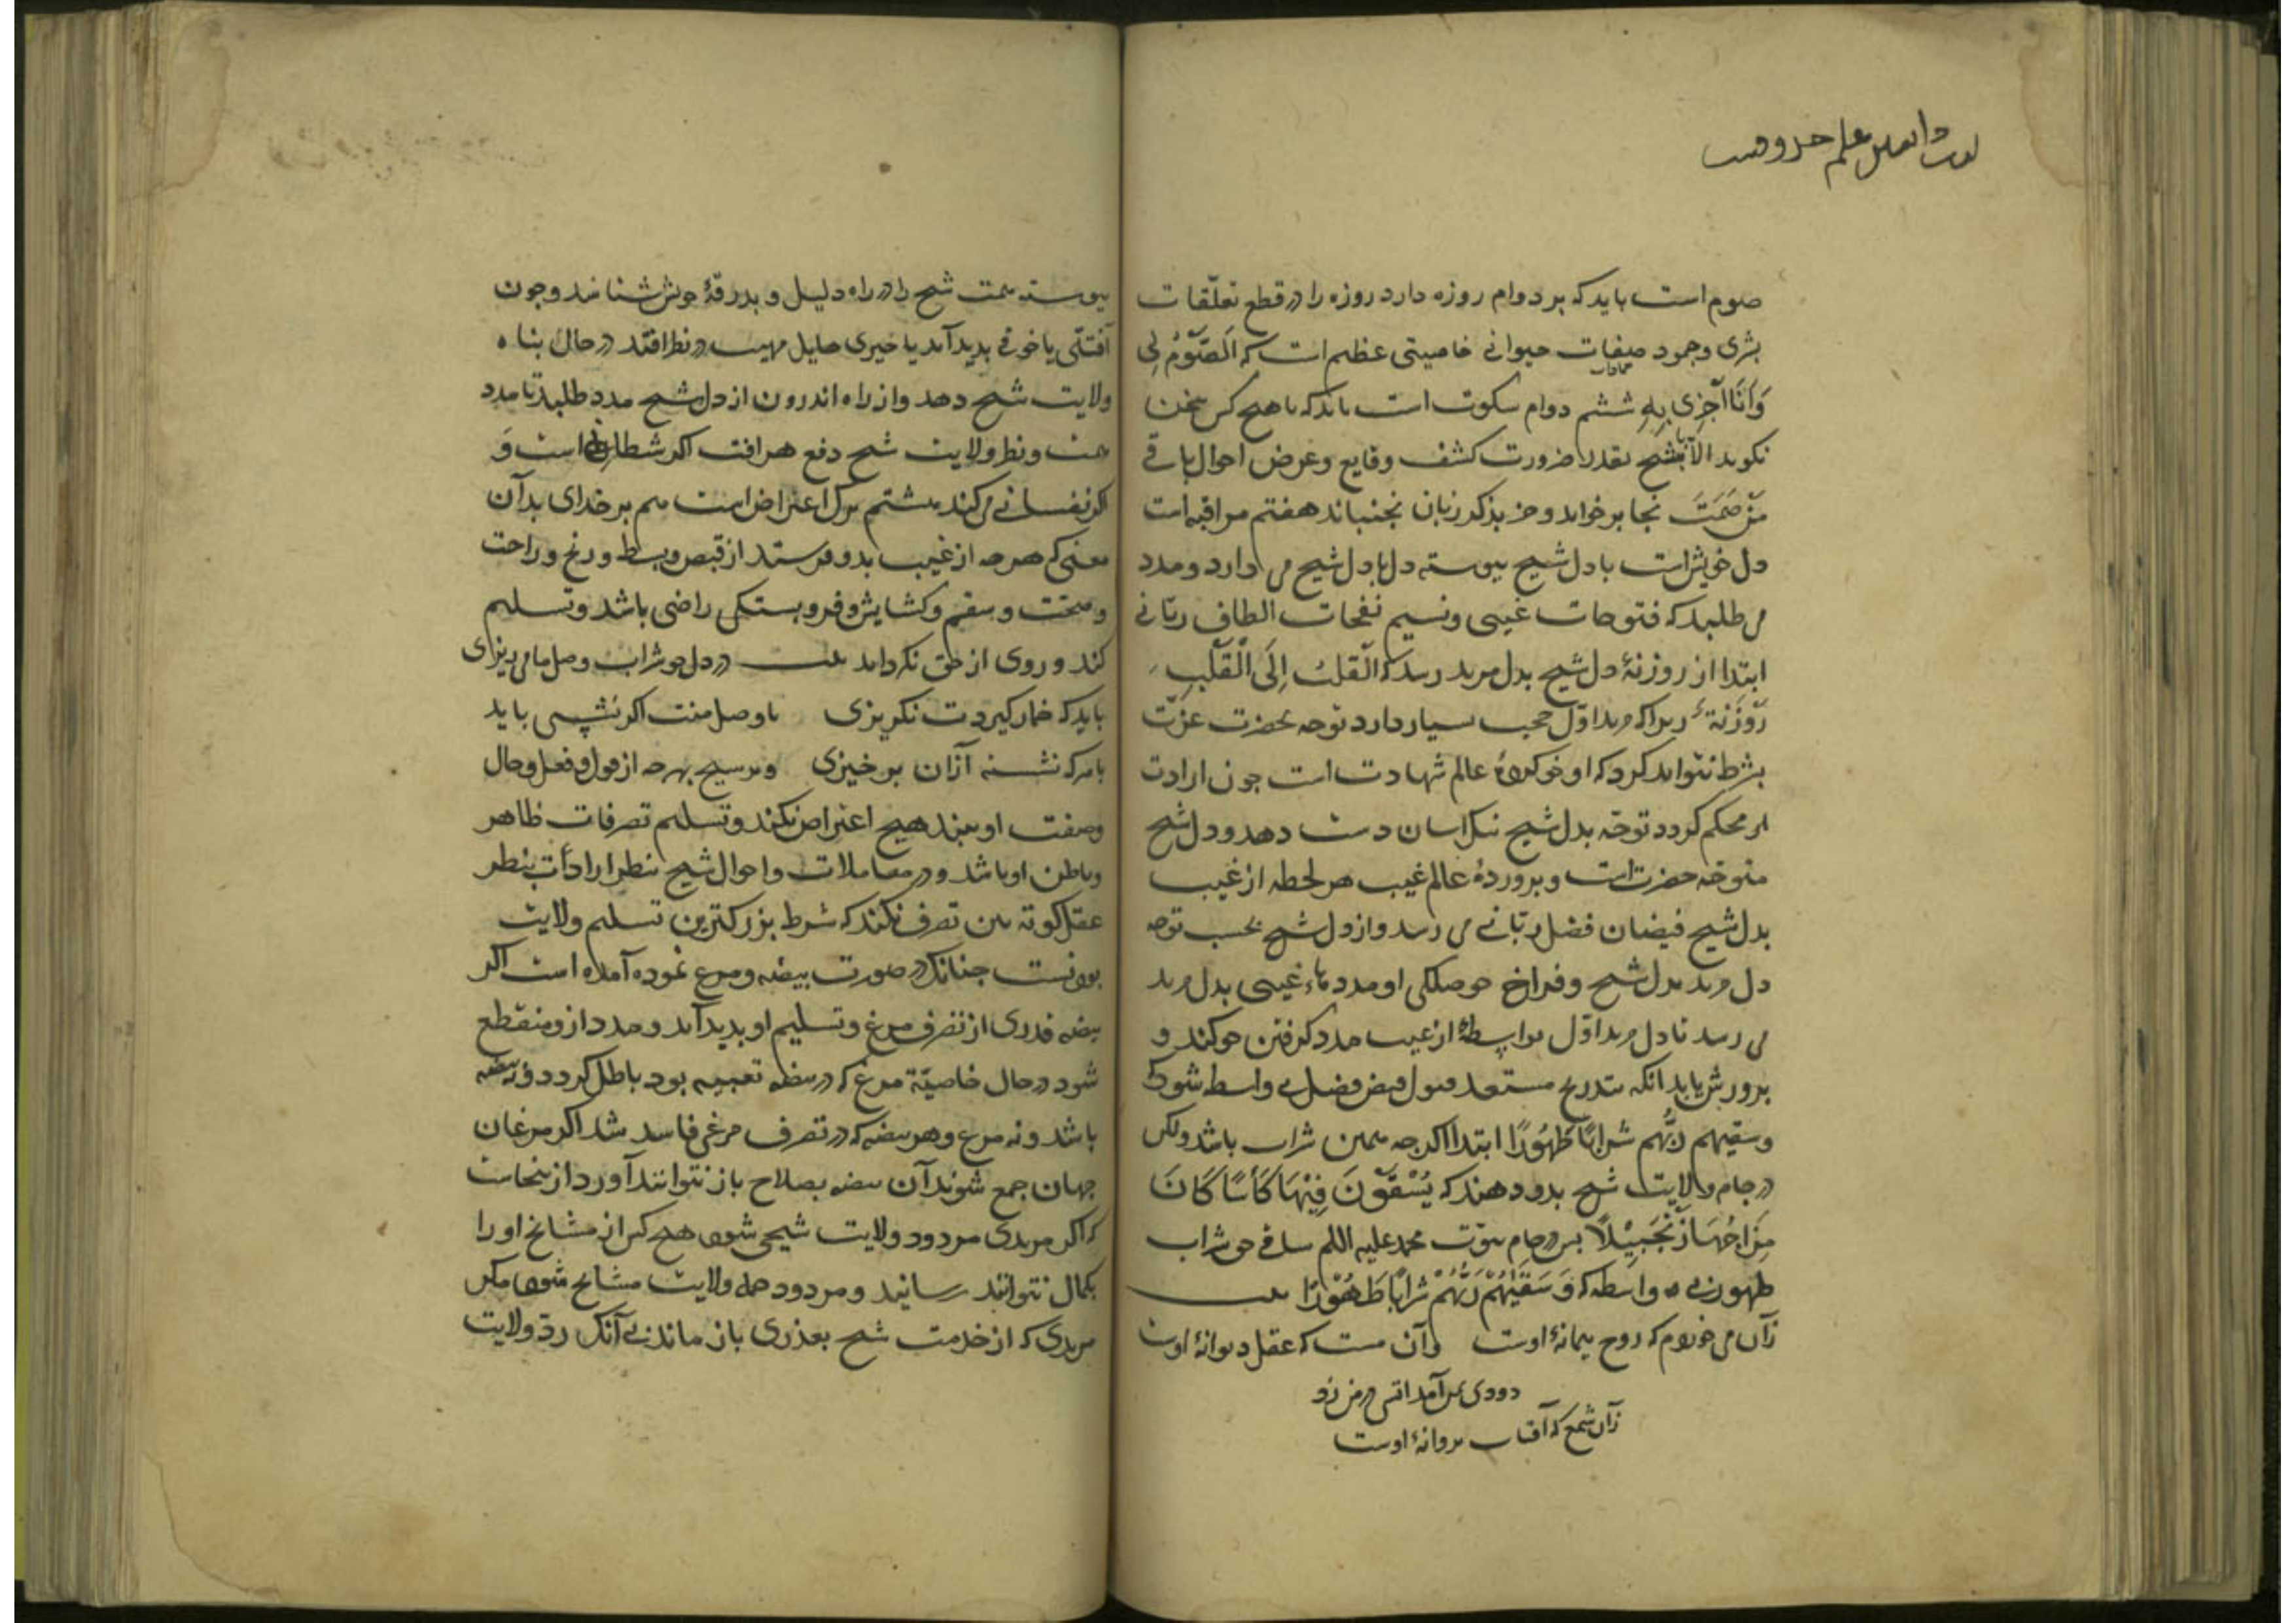 صوم است باید که بر دوام روزه دارد روزه را در قطع تعلّقات
بشری و جمود صفات حیوانی خاصیتی عظیم است که اَلصَّوْمُ لِی
وَاَنَا اَجْزِی بِهِ ششم دوام سکوت است باید که با هیچ کس سخن
نکوید الا با شیخ بقدر ضرورت کشف وقایع و عرض احوال باقی
مَنْ صَمَتَ نجا برخواند و جز بذکر زبان نجنباند هفتم مراقبه است
دل خویش است با دل شیخ پیوسته دل با دل شیخ می دارد و مدد
می طلبد که فتوحات غیبی و نسیم نفحات الطاف ربّانی
ابتدا از روزنهٔ دل شیخ بدل مرید رسد که اَلْقلبُ اِلَی الْقَلْبِ
رَوْزَنَة زیرا که مرید اوّل حجب بسیار دارد توجه بحضرت عزّت
بشرط نتواند کرد که او خوکردهٔ عالم شهادت است چون ارادت
محکم کردد توجّه بدل شیخ اسان دست دهد و دل شیخ
متوجّه حضرت است و پروردهٔ عالم غیب هر لحظه از غیب
بدل شیخ فیضان فضل ربّانی می رسد و از دل شیخ بحسب توجه
دل مرید بدل شیخ و فراخ حوصلکی او مددهاء غیبی بدل مرید
می رسد تا دل مرید اوّل بواسطهٔ از غیب مدد کرفتن خو کند و
پرورش یابد انکه بتدریج مستعد قبول فیض فضل بی واسطه شود که
وسقیهم ربُّهم شرابًا طَهُورًا ابتدا اکر چه همین شراب باشد ولکن
در جام ولایت شیخ بدو دهند که یُسْقَوْنَ فِیْهَا کَأْسًا کَانَ
مِزَاجُهَا زَنْجَبِیْلًا پس در جام نبوّت محمد علیه السلم ساقی حق شراب
طهور بی واسطه که وَسَقَیٰهُمْ رَبُّهُمْ شَرابًا طَهُوْرًا بیت
زآن می خوردم که روح پیمانهٔ اوست وآن مست که عقل دیوانهٔ اوست
دودی بمن آمد آتشی در من زد
زآن شمع که آفتاب پروانهٔ اوست
پیوسته همت شیخ را در راه دلیل و بدرقهٔ خویش شناسد و چون
آفتی یا خوفی پدید آید یا خیری هایل مهیب در نظر افتد در حال پناه
ولایت شیخ دهد و از راه اندرون از دل شیخ مدد طلبد تا مدد
همت و نظر ولایت شیخ دفع هر افت اکر شیطانی است وَ
اکر نفسانی می کند هشتم ترک اعتراض است هم بر خدای بدآن
معنی که هر چه از غیب بدو فرستد از قبض و بسط و رنج و راحت
و صحّت و سقم و کشایش و فروبستکی راضی باشد و تسلیم
کند و روی از حق نکرداند بیت در دل چو شراب وصل ما می ریزی
باید که خمار کیردت نکریزی با وصل منت اکر نشستی باید
باید که نشسته از آن برخیزی و بر شیخ بهر چه از قول و فعل و حال
وصفت او بیند هیچ اعتراض نکند و تسلیم تصرفات ظاهر
و باطن او باشد و در معاملات و احوال شیخ بنظر ارادت بنطر
عقل کوته بین تصرف نکند که شرط بزرکترین تسلیم ولایت
بودنست چنانکه در صورت بیضه و مرغ نموده آمده است اکر
بیضه قدری از تصرف مرغ و تسلیم او پدید آید و مدد از ومنقطع
شود در حال خاصیّة مرغ که در بیضه تعبیه بود باطل کردد و نه بیضه
باشد و نه مرغ و هر بیضه که در تصرف مرغی فاسد شد اکر مرغان
جهان جمع شوند آن بیضه بصلاح باز نتوانند آورد از ینجاست
که اکر مریدی مردود ولایت شیخی شود هیچ کس از مشایخ او را
بکمال نتوانند رسانید و مردود همه ولایت مشایخ شود مکر
مریدی که از خدمت شیخ بعذری باز ماند بی آنک ردّ ولایت